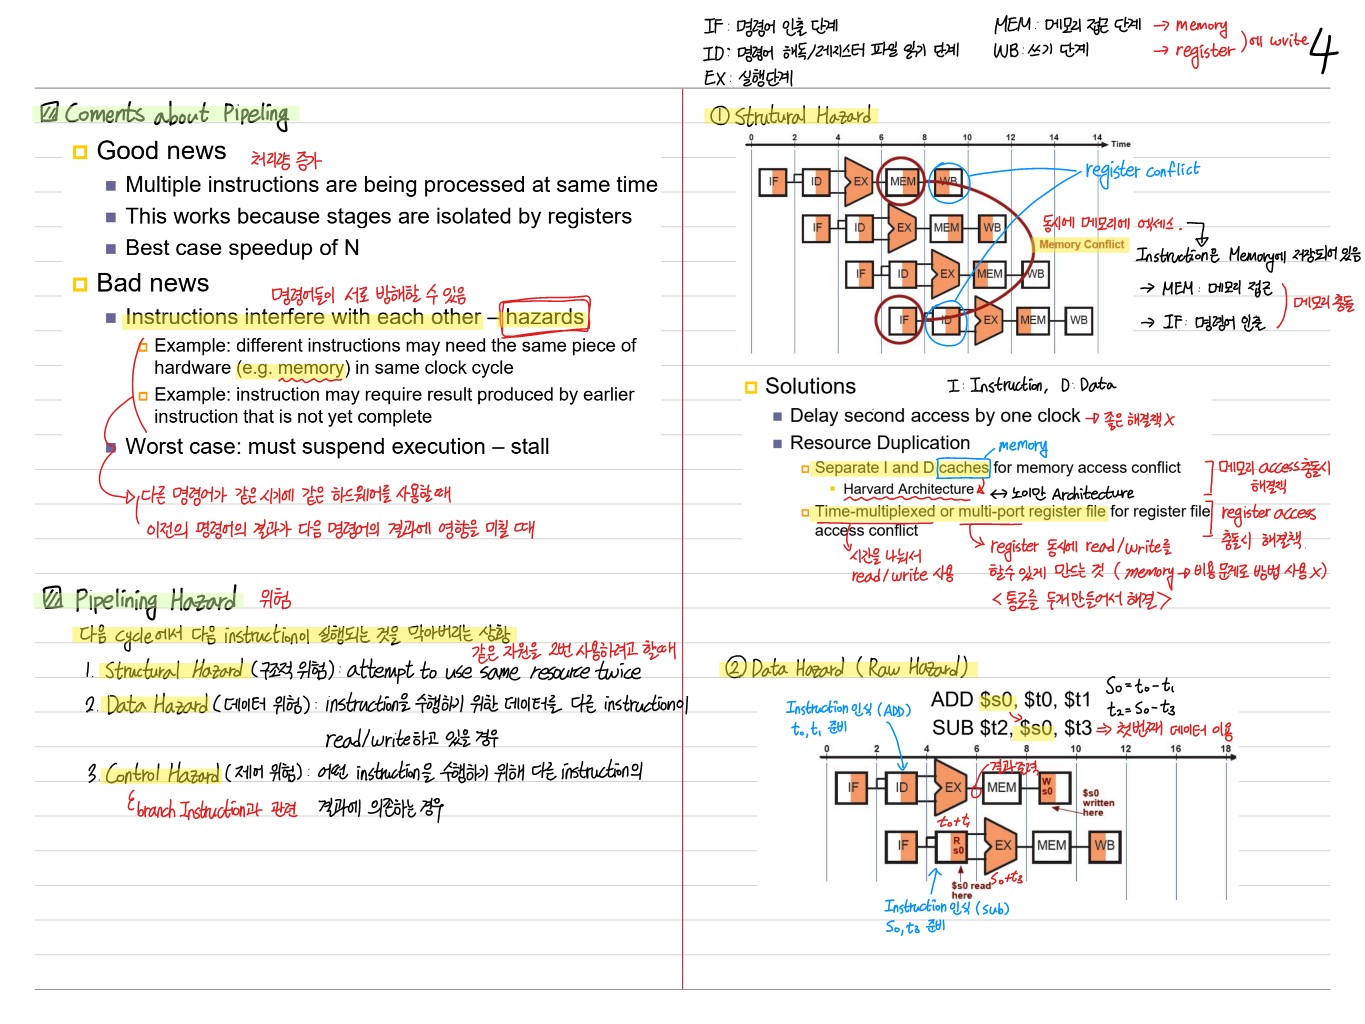 IF : 명령어 인출 단계
ID : 명령어 해독/레지스터 파일 읽기 단계
EX : 실행단계
MEM : 메모리 접근 단계 → memory
WB : 쓰기 단계 → register
)에 write
4
Coments about Pipeling
Good news
처리량 증가
Multiple instructions are being processed at same time
This works because stages are isolated by registers
Best case speedup of N
Bad news
명령어들이 서로 방해할 수 있음
Instructions interfere with each other – hazards
Example: different instructions may need the same piece of
hardware (e.g. memory) in same clock cycle
Example: instruction may require result produced by earlier
instruction that is not yet complete
Worst case: must suspend execution – stall
다른 명령어가 같은 시기에 같은 하드웨어를 사용할 때
이전의 명령어의 결과가 다음 명령어의 결과에 영향을 미칠 때
Pipelining Hazard 위험
다음 cycle에서 다음 instruction이 실행되는 것을 막아버리는 상황
같은 자원을 2번 사용하려고 할때
1. Structural Hazard (구조적 위험) : attempt to use same resource twice
2. Data Hazard (데이터 위험) : instruction을 수행하기 위한 데이터를 다른 instruction이
read/write하고 있을 경우
3. Control Hazard (제어 위험) : 어떤 instruction을 수행하기 위해 다른 instruction의
branch Instruction과 관련 결과에 의존하는 경우
① Strutural Hazard
0 2 4 6 8 10 12 14 Time
IF ID EX MEM WB
register conflict
IF ID EX MEM WB
동시에 메모리에 액세스.
Memory Conflict
Instruction은 Memory에 저장되어 있음
IF ID EX MEM WB
→ MEM : 메모리 접근
→ IF : 명령어 인출
메모리 충돌
IF ID EX MEM WB
Solutions
I : Instruction, D : Data
Delay second access by one clock → 좋은 해결책 X
Resource Duplication
memory
Separate I and D caches for memory access conflict
메모리 access 충돌시
해결책
Harvard Architecture ↔ 노이만 Architecture
Time-multiplexed or multi-port register file for register file
access conflict
register access
충돌시 해결책.
시간을 나눠서
read/write 사용
register 동시에 read/write를
할수 있게 만드는 것 ( memory → 비용 문제로 방법 사용 X )
< 통로를 두개 만들어서 해결 >
② Data Hazard ( Raw Hazard )
ADD $s0, $t0, $t1
S0 = t0 - t1
SUB $t2, $s0, $t3 ⇒ 첫번째 데이터 이용
t2 = S0 - t3
Instruction 인식 (ADD)
t0, t1 준비
0 2 4 6 8 10 12 16 18
결과 출력
IF ID EX MEM W s0
$s0
written
here
t0+t1
IF R s0 EX MEM WB
S0+t3
$s0 read
here
Instruction 인식 (sub)
S0, t3 준비